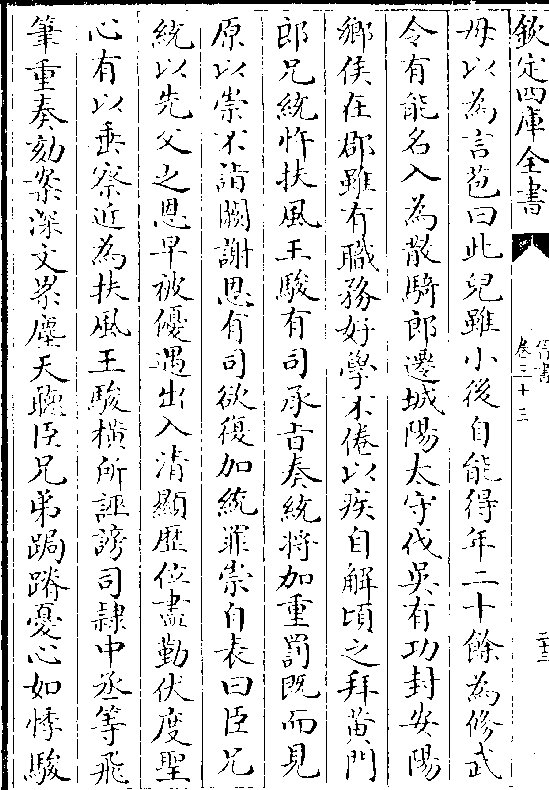 欽定四庫全書
晉書
卷三十三
二十三
母以為言苞曰此兒雖小後自能得年二十餘為修武
令有能名入為散騎郎遷城陽太守伐吳有功封安陽
鄉侯在郡雖有職務好學不倦以疾自解頃之拜黃門
郎兄統忤扶風王駿有司承旨奏統將加重罰既而見
原以崇不詣闕謝恩有司欲復加統罪崇自表曰臣兄
統以先父之恩早被優遇出入清顯歷位盡勤伏度聖
心有以垂察近為扶風王駿橫所誣謗司隸中丞等飛
筆重奏劾案深文累塵天聽臣兄弟跼蹐憂心如悸駿